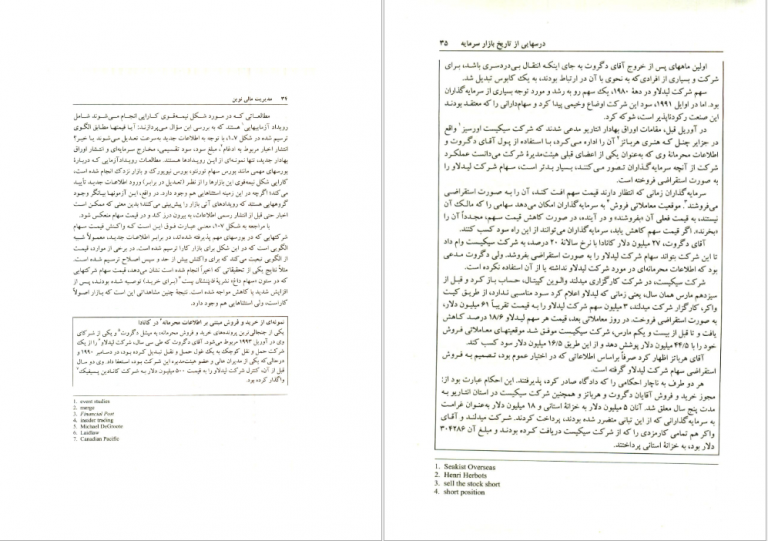 ۳۴ مدیریت مالی نوین
مطالعاتی که در مورد شکل نیمه‌قوی کارایی انجام می‌شوند شامل
رویداد آزماییهایی¹ هستند که به بررسی این سؤال می‌پردازند: آیا قیمتها مطابق الگوی
ترسیم شده در شکل ۷ـ۱، با توجه به اطلاعات جدید به‌سرعت تعدیل می‌شوند یا خیر؟
انتشار اخبار مربوط به ادغام²، مبلغ سود، سود تقسیمی، مخارج سرمایه‌ای و انتشار اوراق
بهادار جدید، تنها نمونه‌ای از این رویدادها هستند. مطالعات رویدادآزمایی که دربارهٔ
بورسهای مهمی مانند بورس سهام تورنتو، بورس نیویورک و بازار نزدک انجام شده است،
کارایی شکل نیمه‌قوی این بازارها را از نظر تعدیل در برابر ورود اطلاعات جدید تأیید
می‌کند؛ اگرچه در این زمینه استثناهایی هم وجود دارد. در واقع، این آزمونها بیانگر وجود
گروههایی هستند که رویدادهای آتی بازار را پیش‌بینی می‌کنند؛ بدین معنی که ممکن است
اخبار حتی قبل از انتشار رسمی اطلاعات، به بیرون درز کند و در قیمت سهام منعکس شود.
با مراجعه به شکل ۷ـ۱، معنی عبارت فوق این است که واکنش قیمت سهام
شرکتهایی که در بورسهای مهم پذیرفته شده‌اند، در برابر اطلاعات جدید، معمولاً شبیه
الگویی است که در این شکل برای بازار کارا ترسیم شده است. در برخی از موارد، قیمت
از الگویی تبعیت می‌کند که برای واکنش بیش از حد و سپس اصلاح ترسیم شده است.
مثلاً نتایج یکی از تحقیقاتی که اخیراً انجام شده است نشان می‌دهد، قیمت سهام شرکتهایی
که در ستون «سهام داغ» نشریهٔ فاینانشال پست³ (برای خرید) توصیه شده بودند، پس از
افزایش شدید با کاهش مواجه شده است. نتیجهٔ چنین مشاهداتی این است که بازار اصولاً
کاراست، ولی استثناهایی هم وجود دارد.
نمونه‌ای از خرید و فروش مبتنی بر اطلاعات محرمانه⁴ در کانادا
یکی از جنجالی‌ترین پرونده‌های خرید و فروش محرمانه، به میشل دگروت⁵ و یکی از شرکای
وی در آوریل ۱۹۹۳ مربوط می‌شود. آقای دگروت که طی سی سال، شرکت لیدلاو⁶ را از یک
شرکت حمل و نقل کوچک به یک غول حمل و نقل تبدیل کرده بود، در دسامبر ۱۹۹۰ و
درحالی که یکی از مدیران عالی و عضو هیئت‌مدیره این شرکت بود، استعفا داد. وی دو سال
قبل از آن، کنترل شرکت لیدلاو را به قیمت ۵۰۰ میلیون دلار به شرکت کانادین پسیفیک⁷
واگذار کرده بود.
1. event studies
2. merge
3. Financial Post
4. insider trading
5. Michael DeGroote
6. Laidlaw
7. Canadian Pacific
درسهایی از تاریخ بازار سرمایه ۳۵
اولین ماههای پس از خروج آقای دگروت به جای اینکه انتقال بی‌دردسری باشد، برای
شرکت و بسیاری از افرادی‌که به نحوی با آن در ارتباط بودند، به یک کابوس تبدیل شد.
سهم شرکت لیدلاو در دههٔ ۱۹۸۰، یک سهم رو به رشد و مورد توجه بسیاری از سرمایه‌گذاران
بود. اما در اوایل ۱۹۹۱، سود این شرکت اوضاع وخیمی پیدا کرد و سهام‌دارانی که معتقد بودند
این صنعت رکودناپذیر است، شوکه کرد.
در آوریل قبل، مقامات اوراق بهادار انتاریو مدعی شدند که شرکت سیکیست اورسیز¹ واقع
در جزایر چنل که هنری هرباتز² آن را اداره می‌کرد، با استفاده از پول آقای دگروت و
اطلاعات محرمانهٔ وی که به‌عنوان یکی از اعضای قبلی هیئت‌مدیرهٔ شرکت می‌دانست عملکرد
شرکت از آنچه سرمایه‌گذاران تصور می‌کنند، بسیار بدتر است، سهام شرکت لیدلاو را
به صورت استقراضی فروخته است.
سرمایه‌گذاران زمانی که انتظار دارند قیمت سهم افت کند، آن را به صورت استقراضی
می‌فروشند³. موقعیت معاملاتی فروش⁴ به سرمایه‌گذاران امکان می‌دهد سهامی را که مالک آن
نیستند، به قیمت فعلی آن «بفروشند» و در آینده، در صورت کاهش قیمت سهم، مجدداً آن را
«بخرند». اگر قیمت سهم کاهش یابد، سرمایه‌گذاران می‌توانند از این راه سود کسب کنند.
آقای دگروت، ۲۷ میلیون دلار کانادا با نرخ سالانهٔ ۲۰ درصد، به شرکت سیکیست وام داد
تا این شرکت بتواند سهام شرکت لیدلاو را به صورت استقراضی بفروشد. ولی دگروت مدعی
بود که اطلاعات محرمانه‌ای در مورد شرکت لیدلاو نداشته یا از آن استفاده نکرده است.
شرکت سیکیست، در شرکت کارگزاری میدلند والوین کپیتال، حساب باز کرد و قبل از
سیزدهم مارس همان سال، یعنی زمانی که لیدلاو اعلام کرد سود مناسبی ندارد، از طریق کیت
واکر، کارگزار شرکت میدلند، ۳ میلیون سهم شرکت لیدلاو را به قیمت تقریباً ۶۱ میلیون دلار،
به صورت استقراضی فروخت. در روز معاملاتی بعد، قیمت هر سهم لیدلاو ۱۸/۶ درصد کاهش
یافت و تا قبل از بیست و یکم مارس، شرکت سیکیست موفق شد موقعیتهای معاملاتی فروش
خود را با ۴۴/۵ میلیون دلار پوشش دهد و از این طریق ۱۶/۵ میلیون دلار سود کسب کند.
آقای هرباتز اظهار کرد صرفاً براساس اطلاعاتی که در اختیار عموم بود، تصمیم به فروش
استقراضی سهام شرکت لیدلاو گرفته است.
هر دو طرف به ناچار احکامی را که دادگاه صادر کرد، پذیرفتند. این احکام عبارت بود از:
مجوز خرید و فروش آقایان دگروت و هرباتز و همچنین شرکت سیکیست در استان انتاریو به
مدت پنج سال معلق شد. آنان ۵ میلیون دلار به خزانهٔ استانی و ۱۸ میلیون دلار به‌عنوان غرامت
به سرمایه‌گذارانی که از این تبانی متضرر شده بودند، پرداخت کردند. شرکت میدلند و آقای
واکر هم تمامی کارمزدی را که از شرکت سیکیست دریافت کرده بودند و مبلغ آن ۳۰۴۲۸۶
دلار بود، به خزانهٔ استانی پرداختند.
1. Seakist Overseas
2. Henri Herbots
3. sell the stock short
4. short position